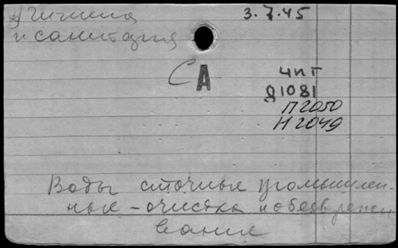 Гигиена 3.7.45
и санитария
СА
ЧПГ
Д1081
П2050
Н2049
Воды сточные промышлен-
ные - очистка и обезврежи-
вание